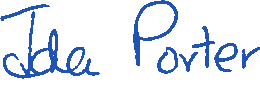 Ida Porter